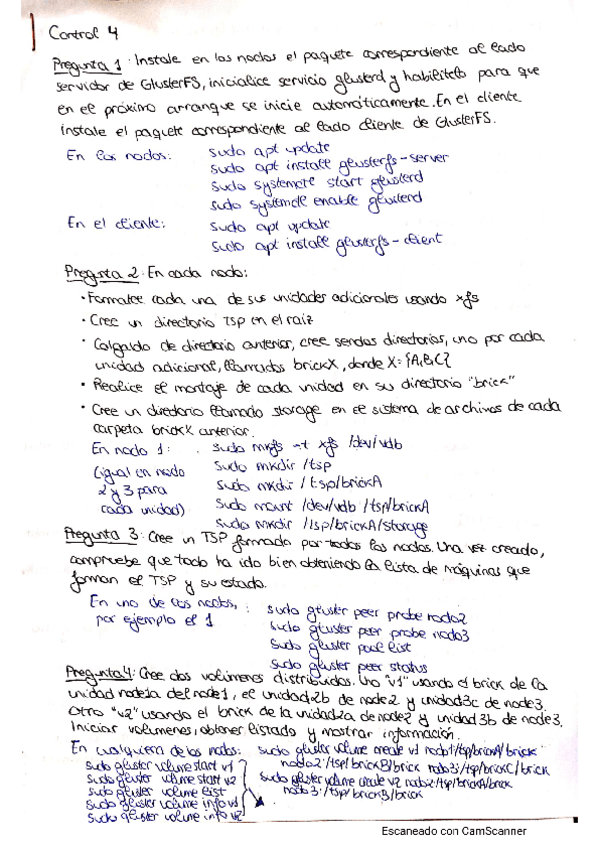 Control 4
Pregunta 1: Instale en los nodos el paquete correspondiente al lado
servidor de GlusterFS, inicialice servicio glusterd y habilitelo para que
en el próximo arranque se inicie automáticamente. En el cliente
instale el paquete correspondiente al lado cliente de GlusterFS.
En los nodos: sudo apt update
sudo apt install glusterfs-server
sudo systemctl start glusterd
sudo systemctl enable glusterd
En el cliente: sudo apt update
sudo apt install glusterfs-client
Pregunta 2: En cada nodo:
• Formatee cada una de sus unidades adicionales usando xfs
• Cree un directorio TSP en el raiz
• Colgado de directorio anterior, cree sendos directorios, uno por cada
unidad adicional, llamados brickX, donde X={A,B,C}
• Realice el montaje de cada unidad en su directorio "brick"
• Cree un directorio llamado storage en el sistema de archivos de cada
carpeta brickX anterior.
En nodo 1: sudo mkfs -t xfs /dev/vdb
(igual en nodo sudo mkdir /tsp
2 y 3 para sudo mkdir /tsp/brickA
cada unidad) sudo mount /dev/vdb /tsp/brickA
sudo mkdir /tsp/brickA/storage
Pregunta 3: Cree un TSP formado por todos los nodos. Una vez creado,
compruebe que todo ha ido bien obteniendo la lista de máquinas que
forman el TSP y su estado.
En uno de los nodos, : sudo gluster peer probe nodo2
por ejemplo el 1 sudo gluster peer probe nodo3
sudo gluster pool list
sudo gluster peer status
Pregunta 4: Cree dos volúmenes distribuidos. Uno "v1" usando el brick de la
unidad node1a del node1, el unidad2b de node2 y unidad3c de node3.
Otro "v2" usando el brick de la unidad2a de node2 y unidad 3b de node3.
Iniciar volumenes, obtener listado y mostrar información.
En cualquiera de los nodos: sudo gluster volume create v1 nodo1:/tsp/brickA/brick
sudo gluster volume start v1 nodo2:/tsp/brickB/brick nodo3:/tsp/brickC/brick
sudo gluster volume start v2 sudo gluster volume create v2 nodo2:/tsp/brickA/brick
sudo gluster volume list nodo3:/tsp/brickB/brick
sudo gluster volume info v1
sudo gluster volume info v2
Escaneado con CamScanner